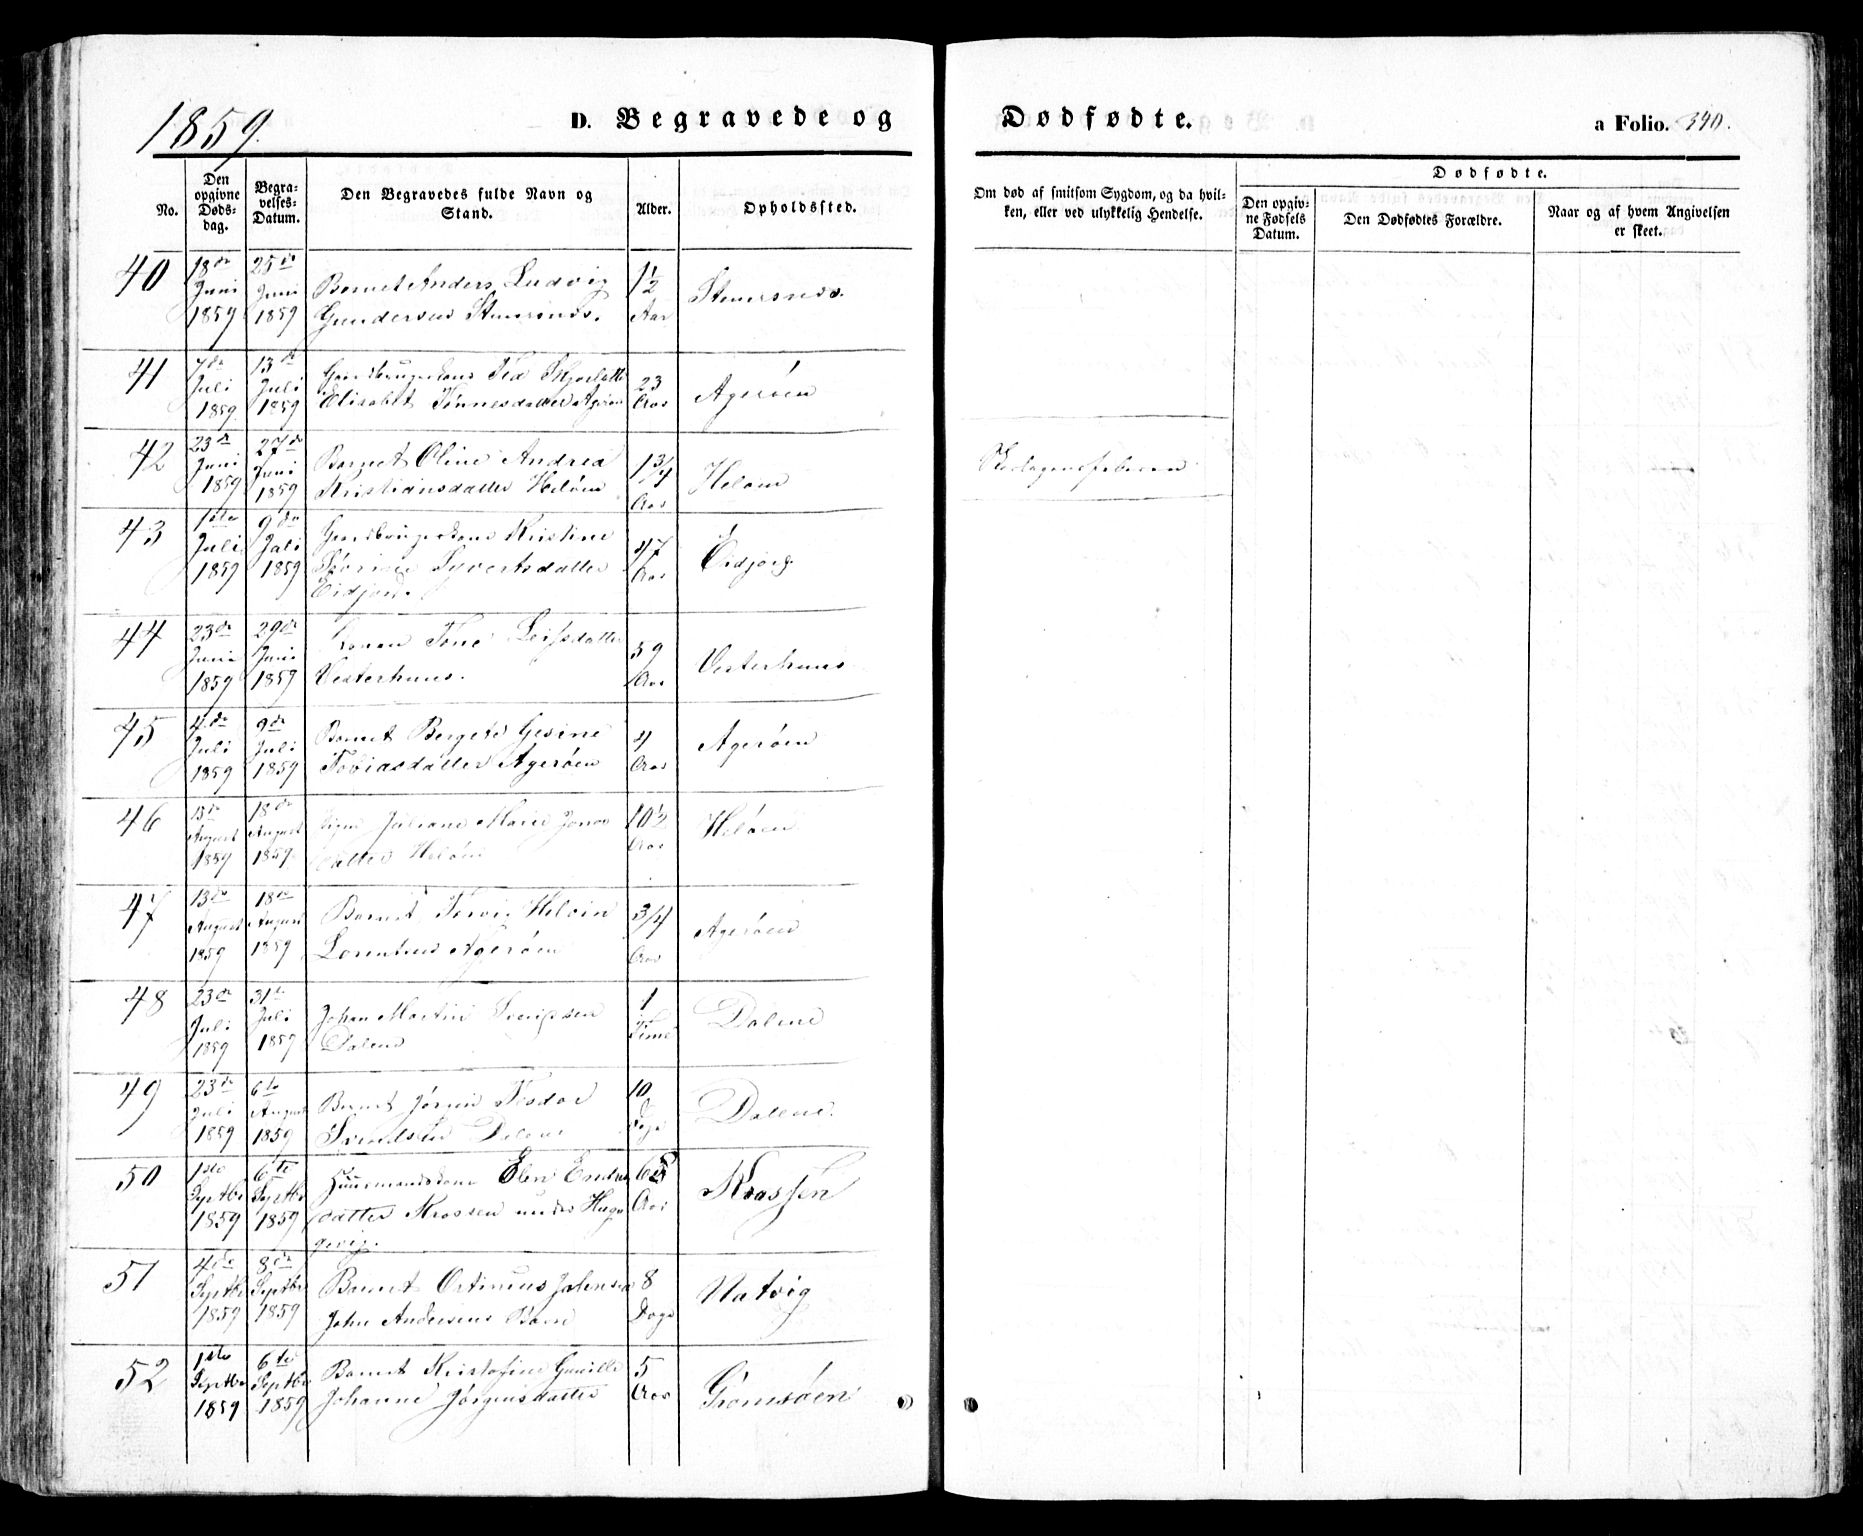 1859.
D. Begravede og Dødfødte. a Folio. 390.
No.
Den opgivne Døds-dag.
Begra-velses-Datum.
Den Begravedes fulde Navn og Stand.
Alder.
Opholdssted.
Om død af smitsom Sygdom, og da hvil-ken, eller ved ulykkelig Hendelse.
Dødfødte.
Den opgiv-ne Fødsels Datum.
Den Dødfødtes Forældre.
Naar og af hvem Angivelsen er skeet.
40 18de Juni 1859 25de Juni 1859 Barnet Anders Ludvig
Gundersen 1½ Aar
41 7de Juli 1859 13de Juli 1859 Gaardbrugerkone
Elisabet Tønnesdatter Agerøen 23 Aar Agerøen
42 23de Juni 1859 27de Juni 1859 Barnet Oline Andrea
Kristiansdatter Heløen 1¾ Aar Heløen
43 1ste Juli 1859 9de Juli 1859 Gaardbrugerkone Kristine
Sørine Syvertsdatter
Eidjord. 47 Aar Eidjord
44 23de Juni 1859 29de Juni 1859 Konen Tone Leifsdatter
Vesterhuus. 59 Aar Vesterhuus
45 4de Juli 1859 9de Juli 1859 Barnet Bergete Gesine
Tobiasdatter Agerøen 4 Aar Agerøen
46 13de August 1859 18de August 1859 Pigen Juliane Marie Jonas
datter Heløen 10½ Aar Heløen
47 13de August 1859 18de August 1859 Barnet
Agerøen ¾ Aar Agerøen
48 23de Juli 1859 31te Juli 1859 Johan Martin
Dalene 1 Time Dalene
49 23de Juli 1859 6te August 1859 Barnet Jørgen
Dalene 10 Dage Dalene.
50 1ste Septbr 1859 6te Septbr 1859 Huusmandskone Elen
datter Krossen under
Aar Krossen
51 4de Septbr 1859 8de Septbr 1859 Barnet
John Andersens Barn 8 Dage Natvig
52 1ste Septbr 1859 6te Septbr 1859 Barnet Kristofine Gunille
Johanne Jørgensdatter 5 Aar Gromsøen